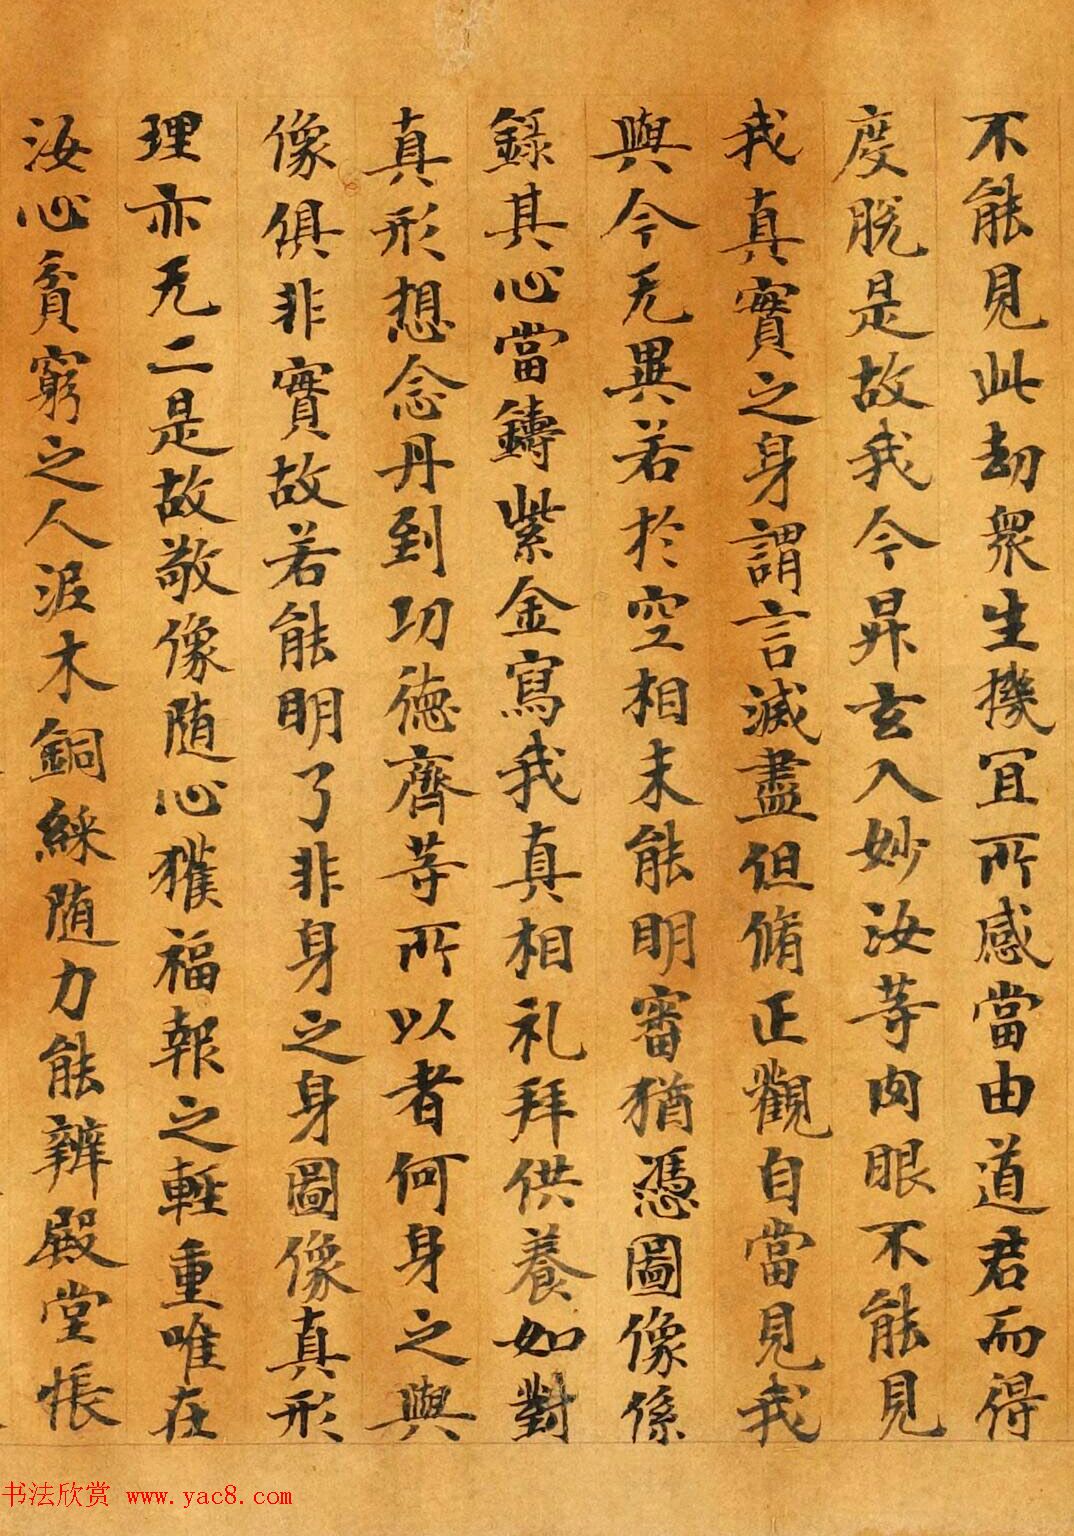 不能見此劫衆生機冝所感當由道君而得
度脫是故我今昇玄入妙汝等肉眼不能見
我真實之身謂言滅盡但脩正觀自當見我
與今无異若於空相未能明審猶憑圖像係
録其心當鑄紫金寫我真相礼拜供養如對
真形想念丹到功德齊等所以者何身之與
像俱非實故若能明了非身之身圖像真形
理亦无二是故敬像随心獲福報之輕重唯在
汝心貧窮之人泥木銅綵随力能辦殿堂帳
书法欣赏 www.yac8.com